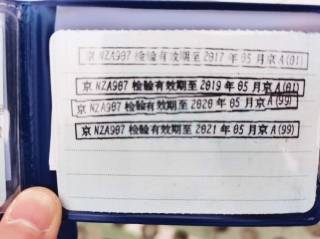 京 NZA907 检验有效期至 2017 年 05 月京 A(01)
京 NZA907 检验有效期至 2019 年 05 月京 A(01)
京 NZA907 检验有效期至 2020 年 05 月京 A(99)
京 NZA907 检验有效期至 2021 年 05 月京 A(99)